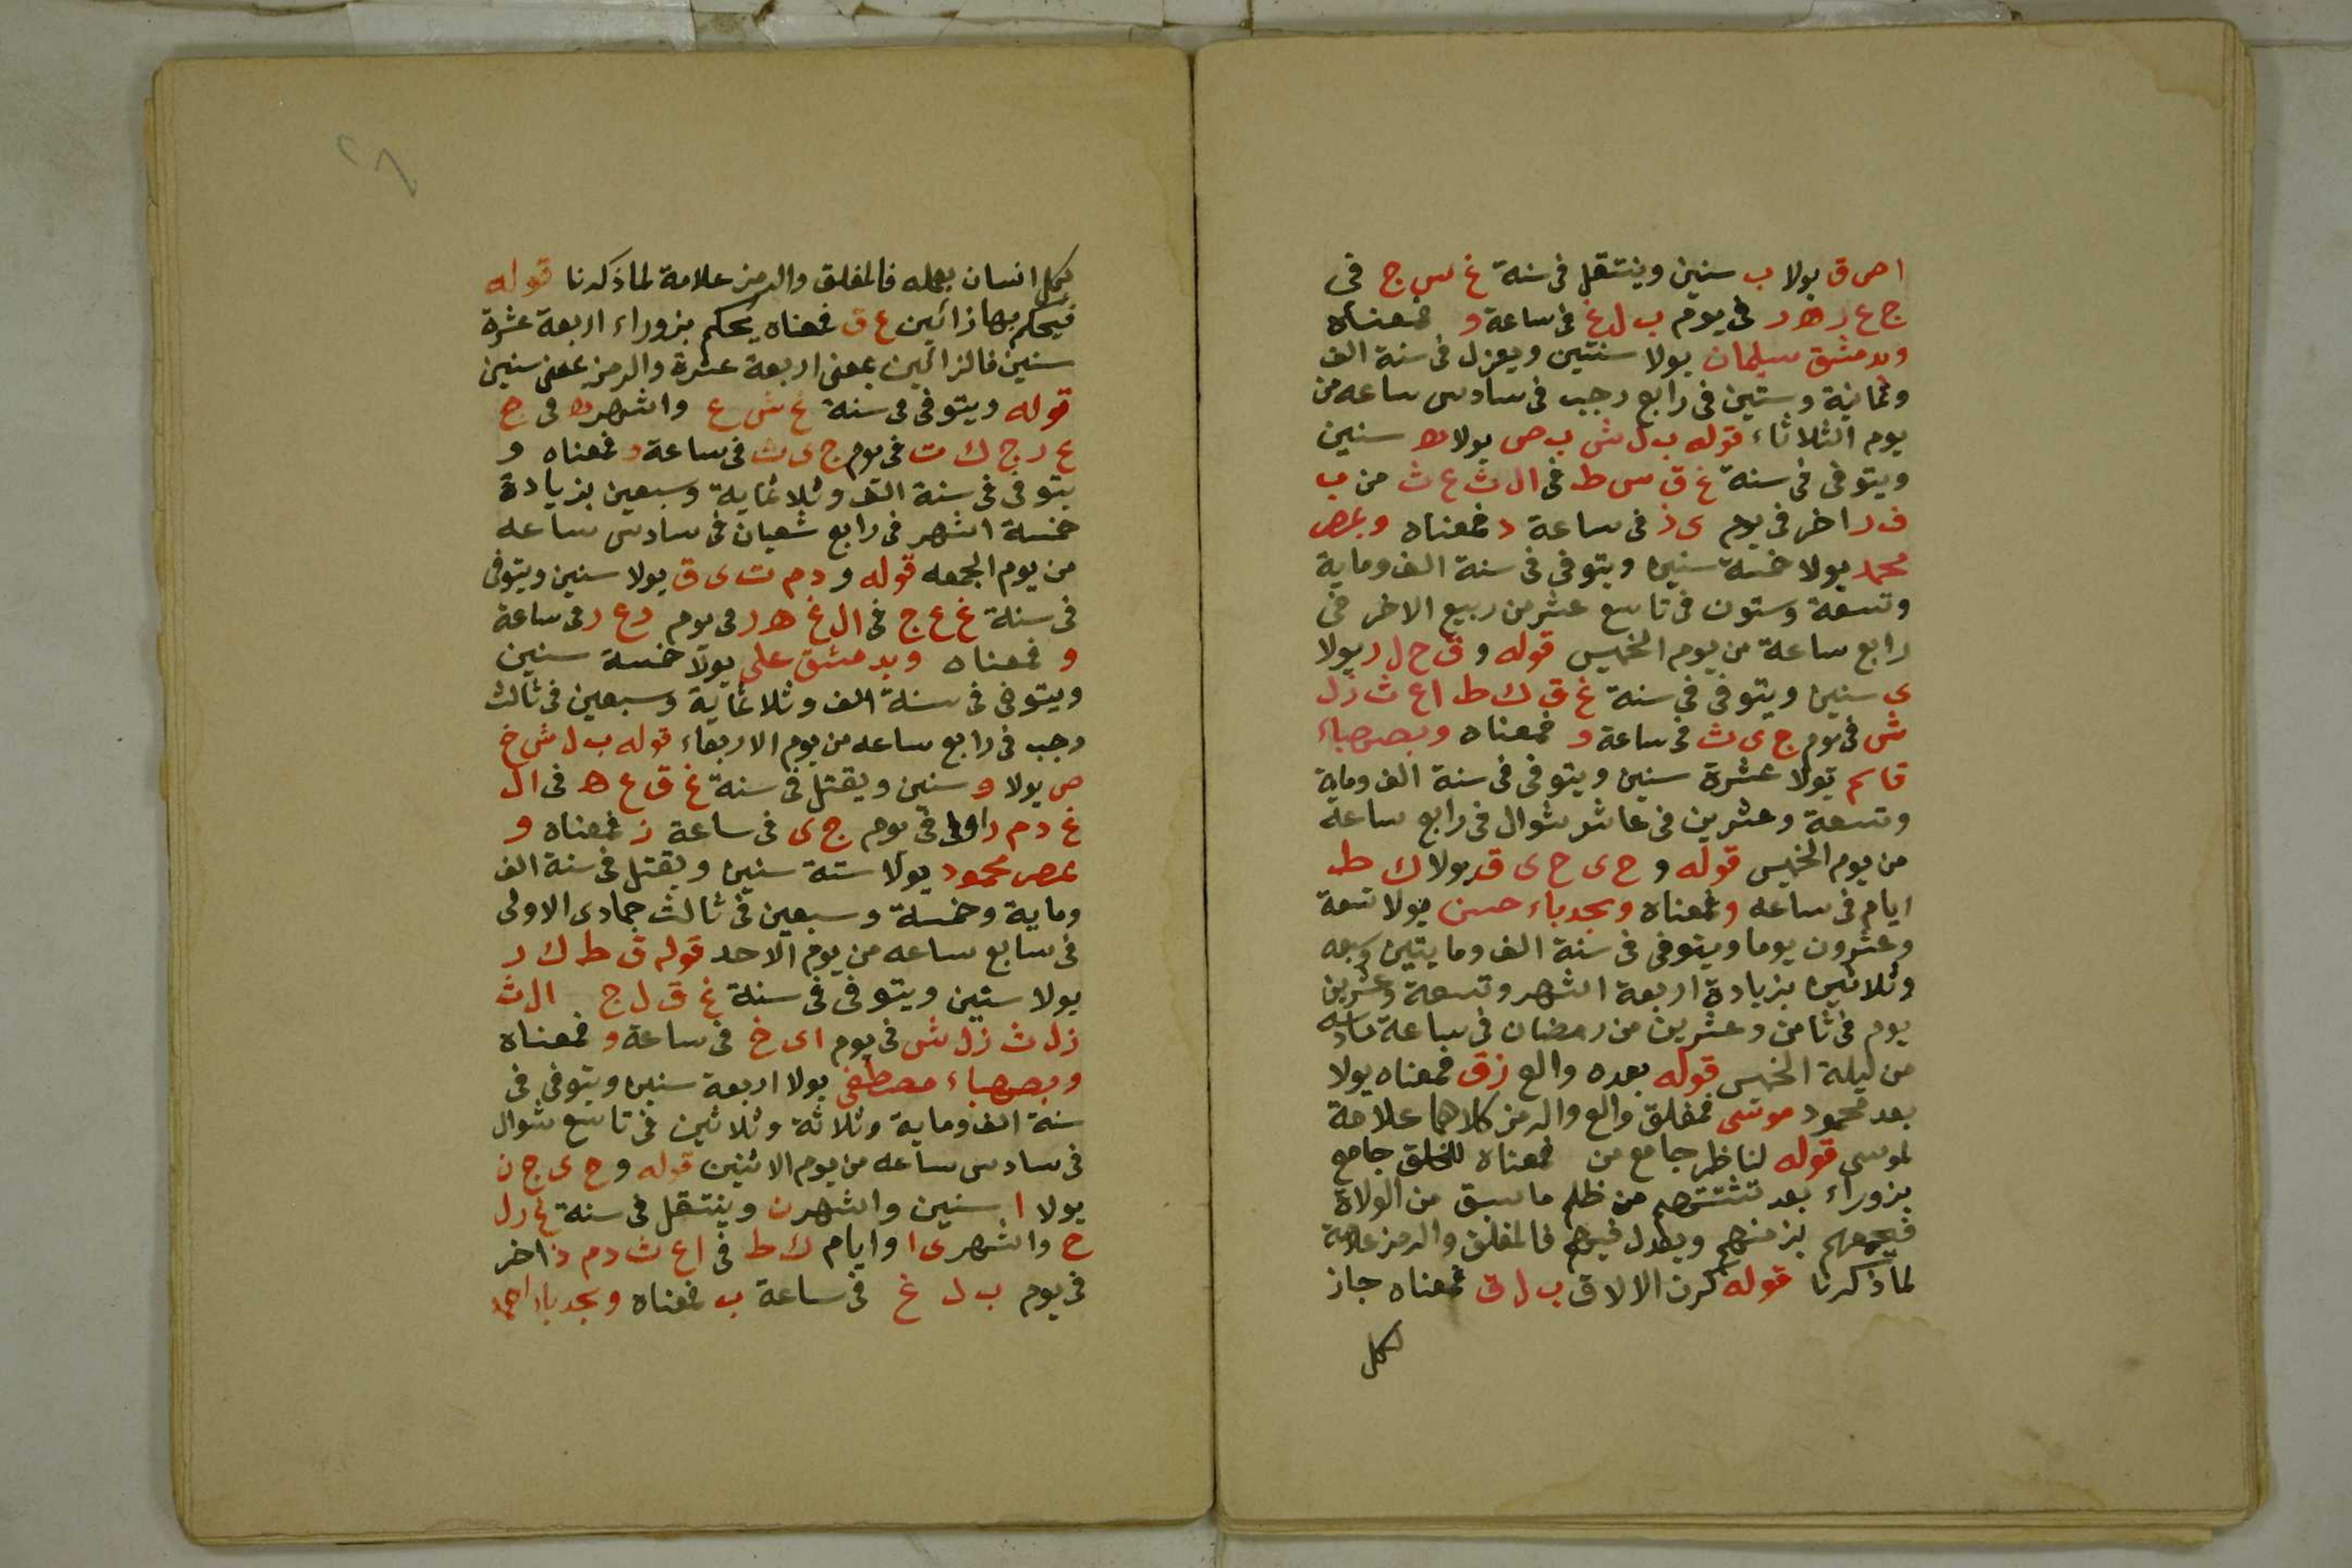 ا ص ق يولا ب سنين وينتقل فى سنة غ س ج فى
ج ع ر ه ر فى يوم ب ل غ فى ساعة و فمعناه
وبدمشق سليمان يولا سنتين ويعزل فى سنة الف
وثمانية وستين فى رابع رجب فى سادس ساعه من
يوم الثلاثاء قوله ب ل ش ب ص يولا ه سنين
ويتوفى فى سنة غ ق س ط فى ال ث ع ث من ب
ف ر اخر فى يوم ى ذ فى ساعة د فمعناه وبمصر
محمد يولا خمسة سنين ويتوفى فى سنة الف وماية
وتسعة وستون فى تاسع عشر من ربيع الاخر فى
رابع ساعة من يوم الخميس قوله و ق ح ل ر يولا
ى سنين ويتوفى فى سنة غ ق ك ط ا ع ث ز ل
ش فى يوم ج ى ث فى ساعة و فمعناه وبصهباء
قاسم يولا عشرة سنين ويتوفى فى سنة الف وماية
وتسعة وعشرين فى عاشر شوال فى رابع ساعة
من يوم الخميس قوله و ح ى ح ى ق يولا ك ط
ايام فى ساعه و فمعناه وبجدباء حسن يولا تسعة
وعشرون يوما ويتوفى فى سنة الف ومايتين وسبعه
وثلاثين بزيادة اربعة اشهر وتسعة وعشرين
يوم فى ثامن وعشرين من رمضان فى ساعة سادسه
من ليلة الخميس قوله بعده والع ز ق فمعناه يولا
بعد محمود موسى فمغلق والع والرمز كلاهما علامة
لموسى قوله لناظر جامع من فمعناه للخلق جامع
بزوراء بعد تشتتهم من ظلم ما سبق من الولاة
فيجمعهم بزمنهم ويعدل فيهم فالمغلق والرمز علامة
لما ذكرنا قوله كرن الا لاق ب ل ق فمعناه جاز
لكل
لكل انسان بعمله فالمغلق والرمز علامة لما ذكرنا قوله
فيحكم بها زائين ع ق فمعناه يحكم بزوراء اربعة عشرة
سنين فالزائين بمعنى اربعة عشرة والرمز بمعنى سنين
قوله ويتوفى فى سنة غ ش ع واشهر ه فى ج
ع ر ج ك ت فى يوم ج ى ث فى ساعة و فمعناه و
يتوفى فى سنة الف وثلاثماية وسبعين بزيادة
خمسة اشهر فى رابع شعبان فى سادس ساعه
من يوم الجمعه قوله و د م ت ى ق يولا سنين ويتوفى
فى سنة غ ع ج فى ال غ ه ر فى يوم د ع ر فى ساعة
و فمعناه وبدمشق على يولا خمسة سنين
ويتوفى فى سنة الف وثلاثماية وسبعين فى ثالث
رجب فى رابع ساعه من يوم الاربعاء قوله ب ل ش خ
ص يولا و سنين ويقتل فى سنة غ ق ع ه فى ال
غ د م د اولى فى يوم ج ى فى ساعة ز فمعناه و
بمصر محمود يولا ستة سنين ويقتل فى سنة الف
وماية وخمسة وسبعين فى ثالث جمادى الاولى
فى سابع ساعه من يوم الاحد قوله ق ط ك ر
يولا سنين ويتوفى فى سنة غ ق ل ج ال ث
ز ل ث ز ل ش فى يوم ا ى خ فى ساعة و فمعناه
وبصهباء مصطفى يولا اربعة سنين ويتوفى فى
سنة الف وماية وثلاثة وثلاثين فى تاسع شوال
فى سادس ساعه من يوم الاثنين قوله و ح ى ج ن
يولا ا سنين واشهر ن وينتقل فى سنة غ ر ل
ح واشهر ى ا وايام ك ط فى ا ع ث د م ذ اخر
فى يوم ب ل غ فى ساعة ب فمعناه وبجدباء احمد